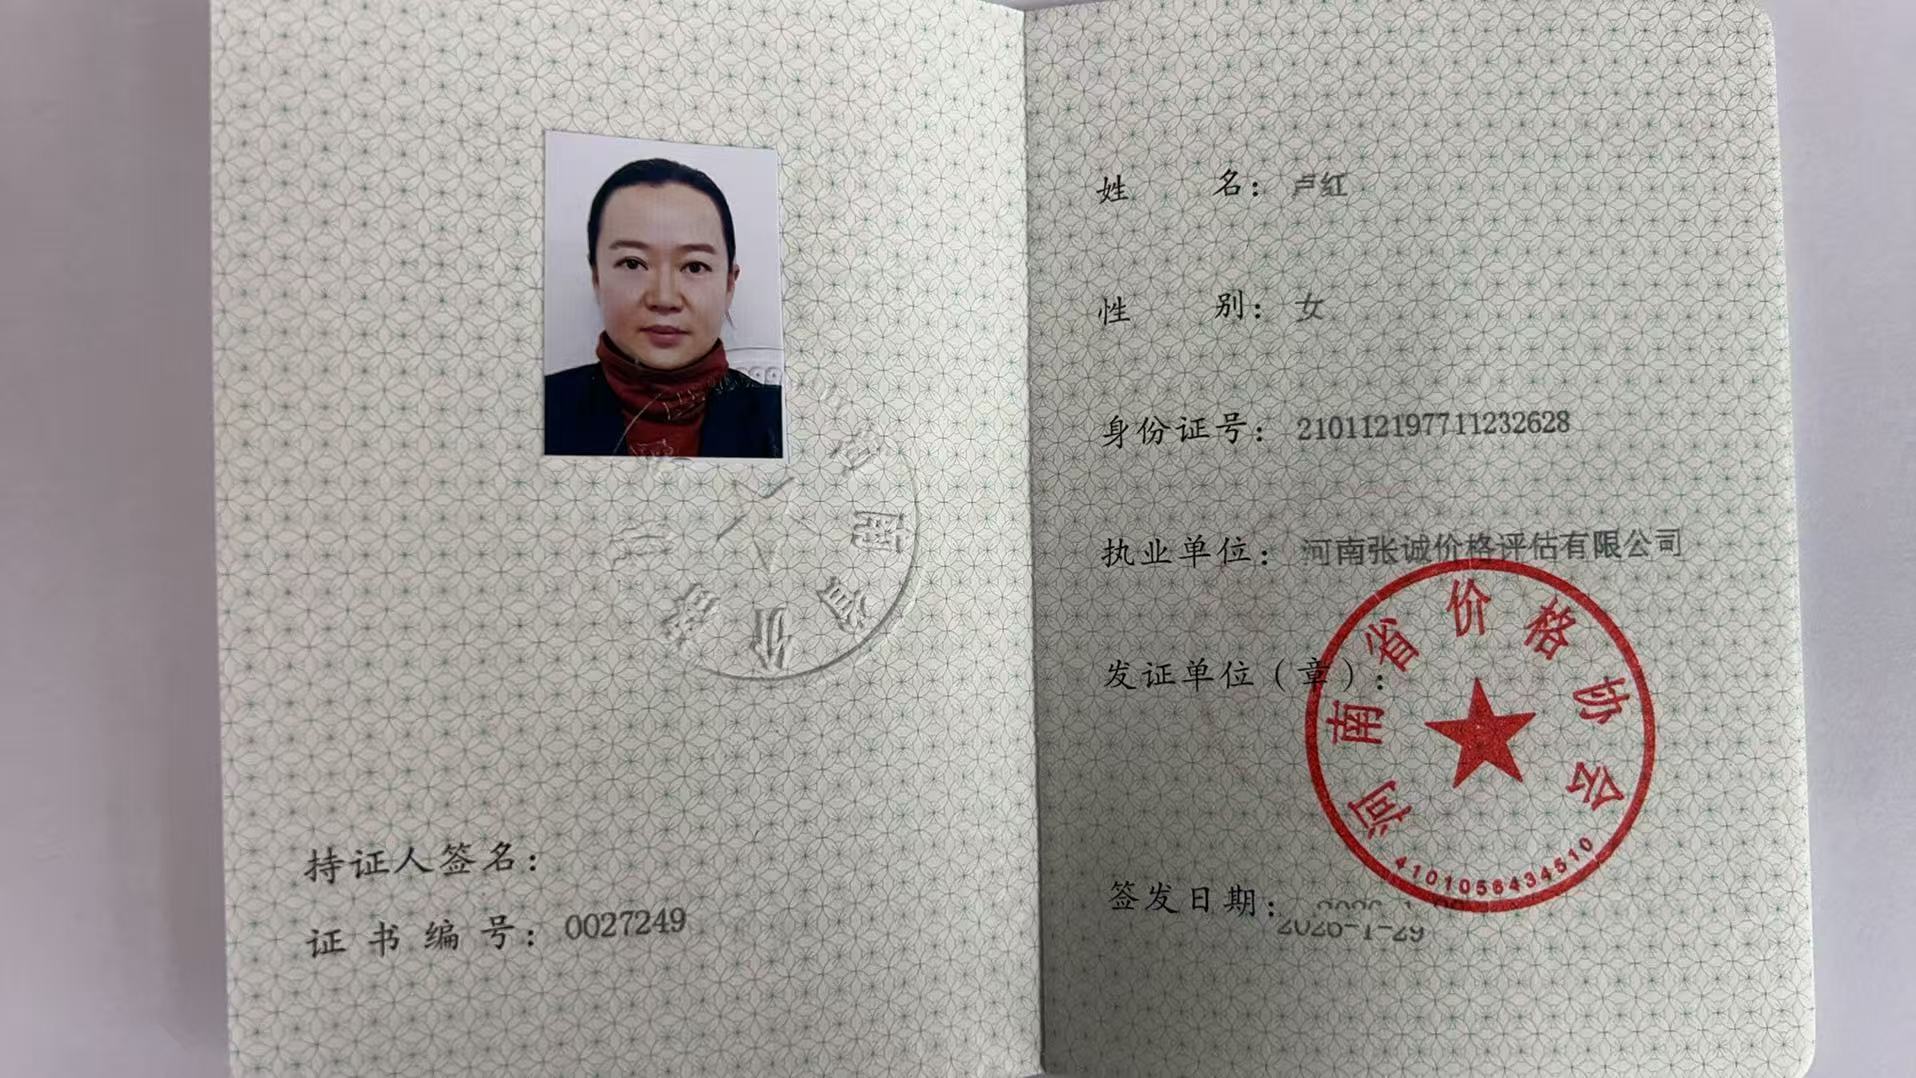 持证人签名：
证书编号：0027249
姓名：卢红
性别：女
身份证号：210112197711232628
执业单位：河南张诚价格评估有限公司
发证单位（章）：
河南省价格协会
4101056434510
签发日期：